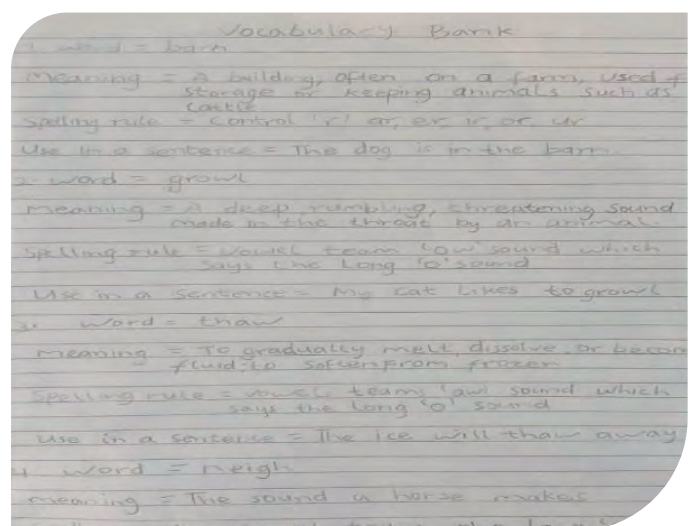 Vocabulary Bank
1. word = barn
Meaning = A buildng, often on a farm, used f
storage or keeping animals such as
cattle
Spelling rule = Control 'r' ar, er, ir, or, ur
Use in a sentence = The dog is in the barn.
2. word = growl
Meaning = A deep, rumbling, threatening sound
made in the throat by an animal.
Spelling rule = vowel team 'ow' sound which
says the Long 'o' sound
Use in a sentence = My cat Likes to growl
word = thaw
Meaning = To gradually melt, dissolve, or becom
fluid; to soften from frozen
Spelling rule = vowel team 'aw' sound which
says the long 'o' sound
Use in a sentence = The ice will thaw away
4 word = neigh
meaning = The sound a horse makes